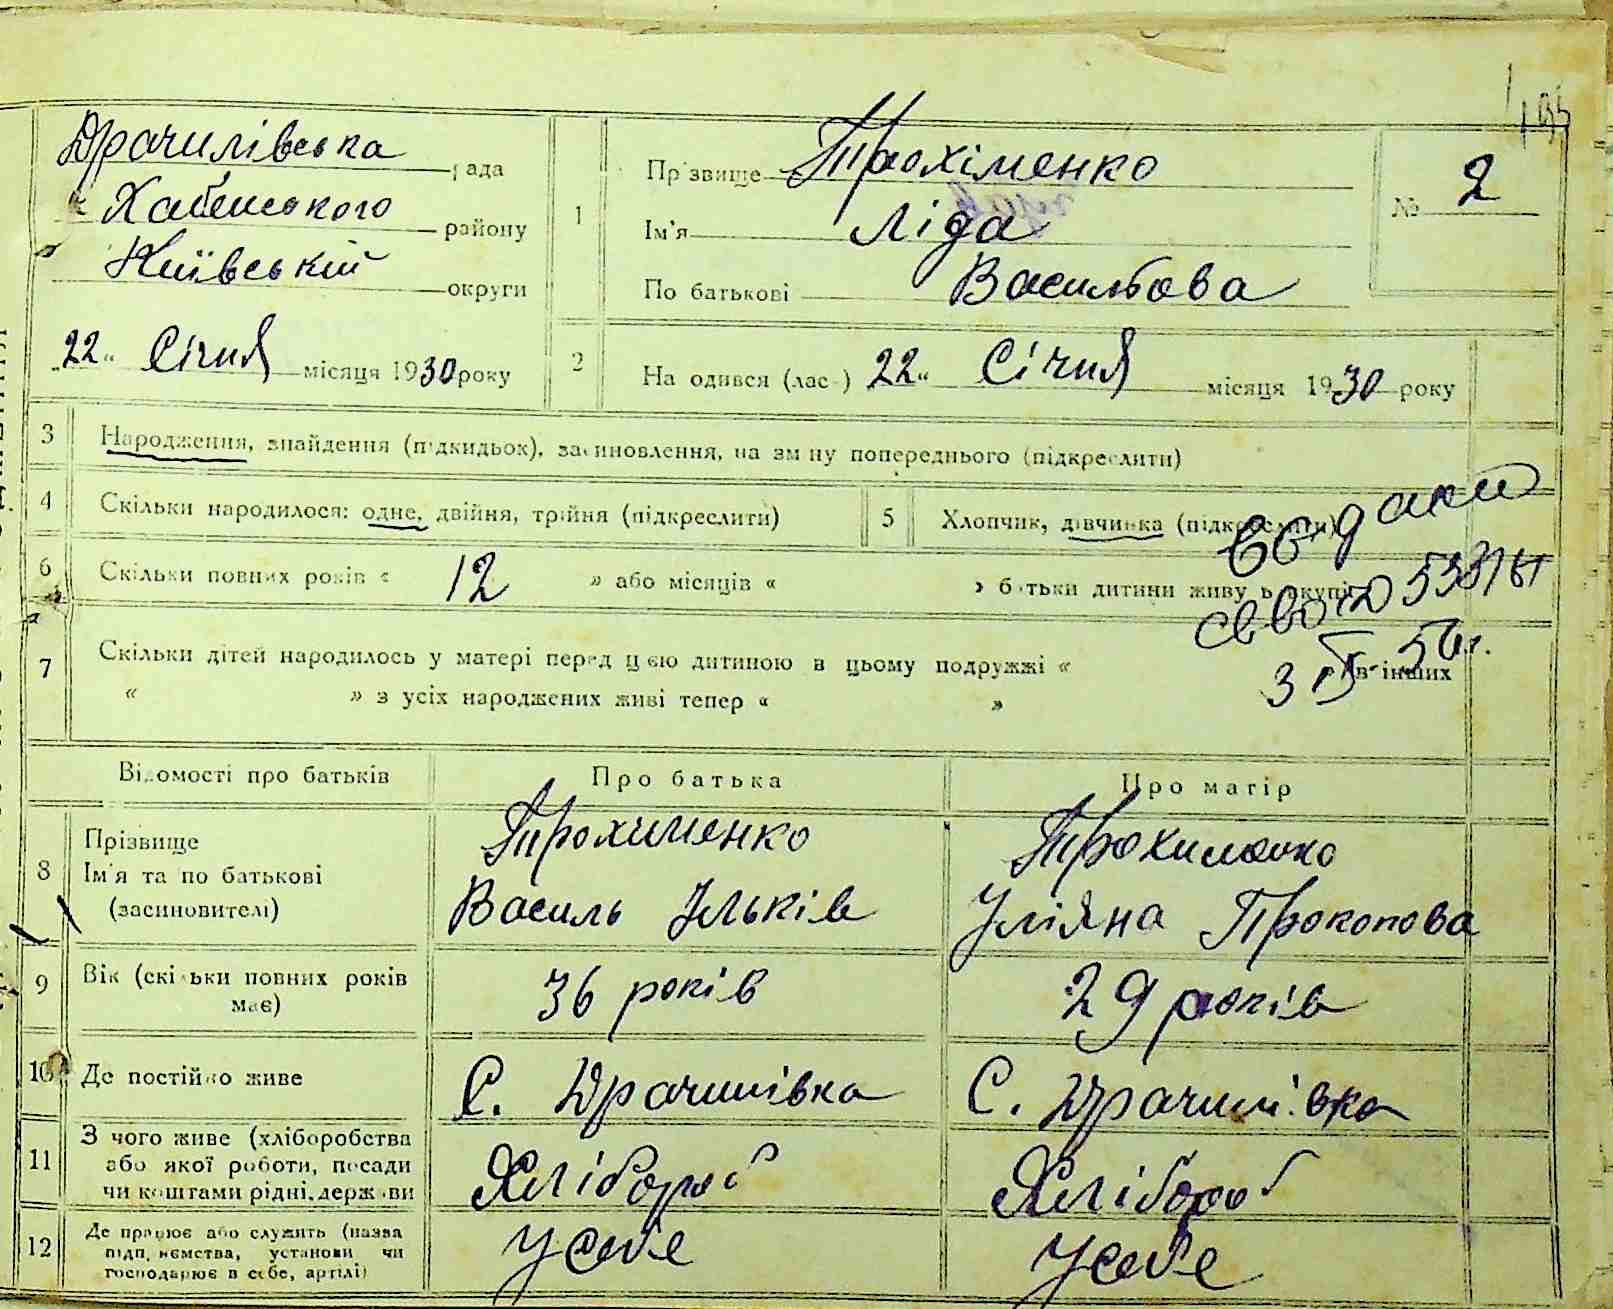 Драчилівська рада
Хабенського району
Київський округи
„22“ Січня місяця 1930 року
1
Прізвище Трохіменко
Ім'я Ліда
По батькові Васильова
№ 2
2
Народився (лась) 22“ Січня місяця 1930 року
3 Народження, знайдення (підкидьок), засиновлення, на зміну попереднього (підкреслити)
4 Скільки народилося: одне, двійня, трійня (підкреслити)
5 Хлопчик, дівчинка (підкреслити)
6 Скільки повних років « 12 » або місяців « » батьки дитини живуть вкупі
7 Скільки дітей народилось у матері перед цією дитиною в цьому подружжі « » в інших
« » з усіх народжених живі тепер « »
Відомості про батьків Про батька Про матір
8 Прізвище Трохименко Трохименко
Ім'я та по батькові Василь Ільків Уліяна Прокопова
(засиновителі)
9 Вік (скільки повних років має) 36 років 29 років
10 Де постійно живе С. Драчилівка С. Драчилівка
11 З чого живе (хліборобства Хлібороб Хлібороб
або якої роботи, посади
чи коштами рідні, держави
12 Де працює або служить (назва У себе У себе
підприємства, установи чи
господарює в себе, артілі)